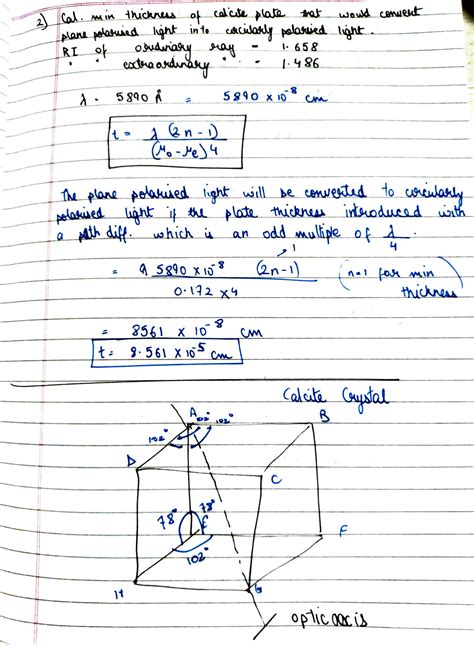 2) Cal. min thickness of calcite plate that would convert
plane polarised light into circularly polarised light.
RI of ordinary ray - 1.658
" " extraordinary " - 1.486
λ - 5890 Å = 5890 × 10⁻⁸ cm
t = λ (2n-1) / (μo - μe) 4
The plane polarised light will be converted to circularly
polarised light if the plate thickness introduced with
a path diff. which is an odd multiple of λ/4.
= 5890 × 10⁻⁸ (2n-1) / 0.172 × 4 (n=1 for min thickness)
1
= 8561 × 10⁻⁸ cm
t = 8.561 × 10⁻⁵ cm
Calcite Crystal
A B
102° 102° 102°
D C
78° 78°
E F
102°
H G
optic axis